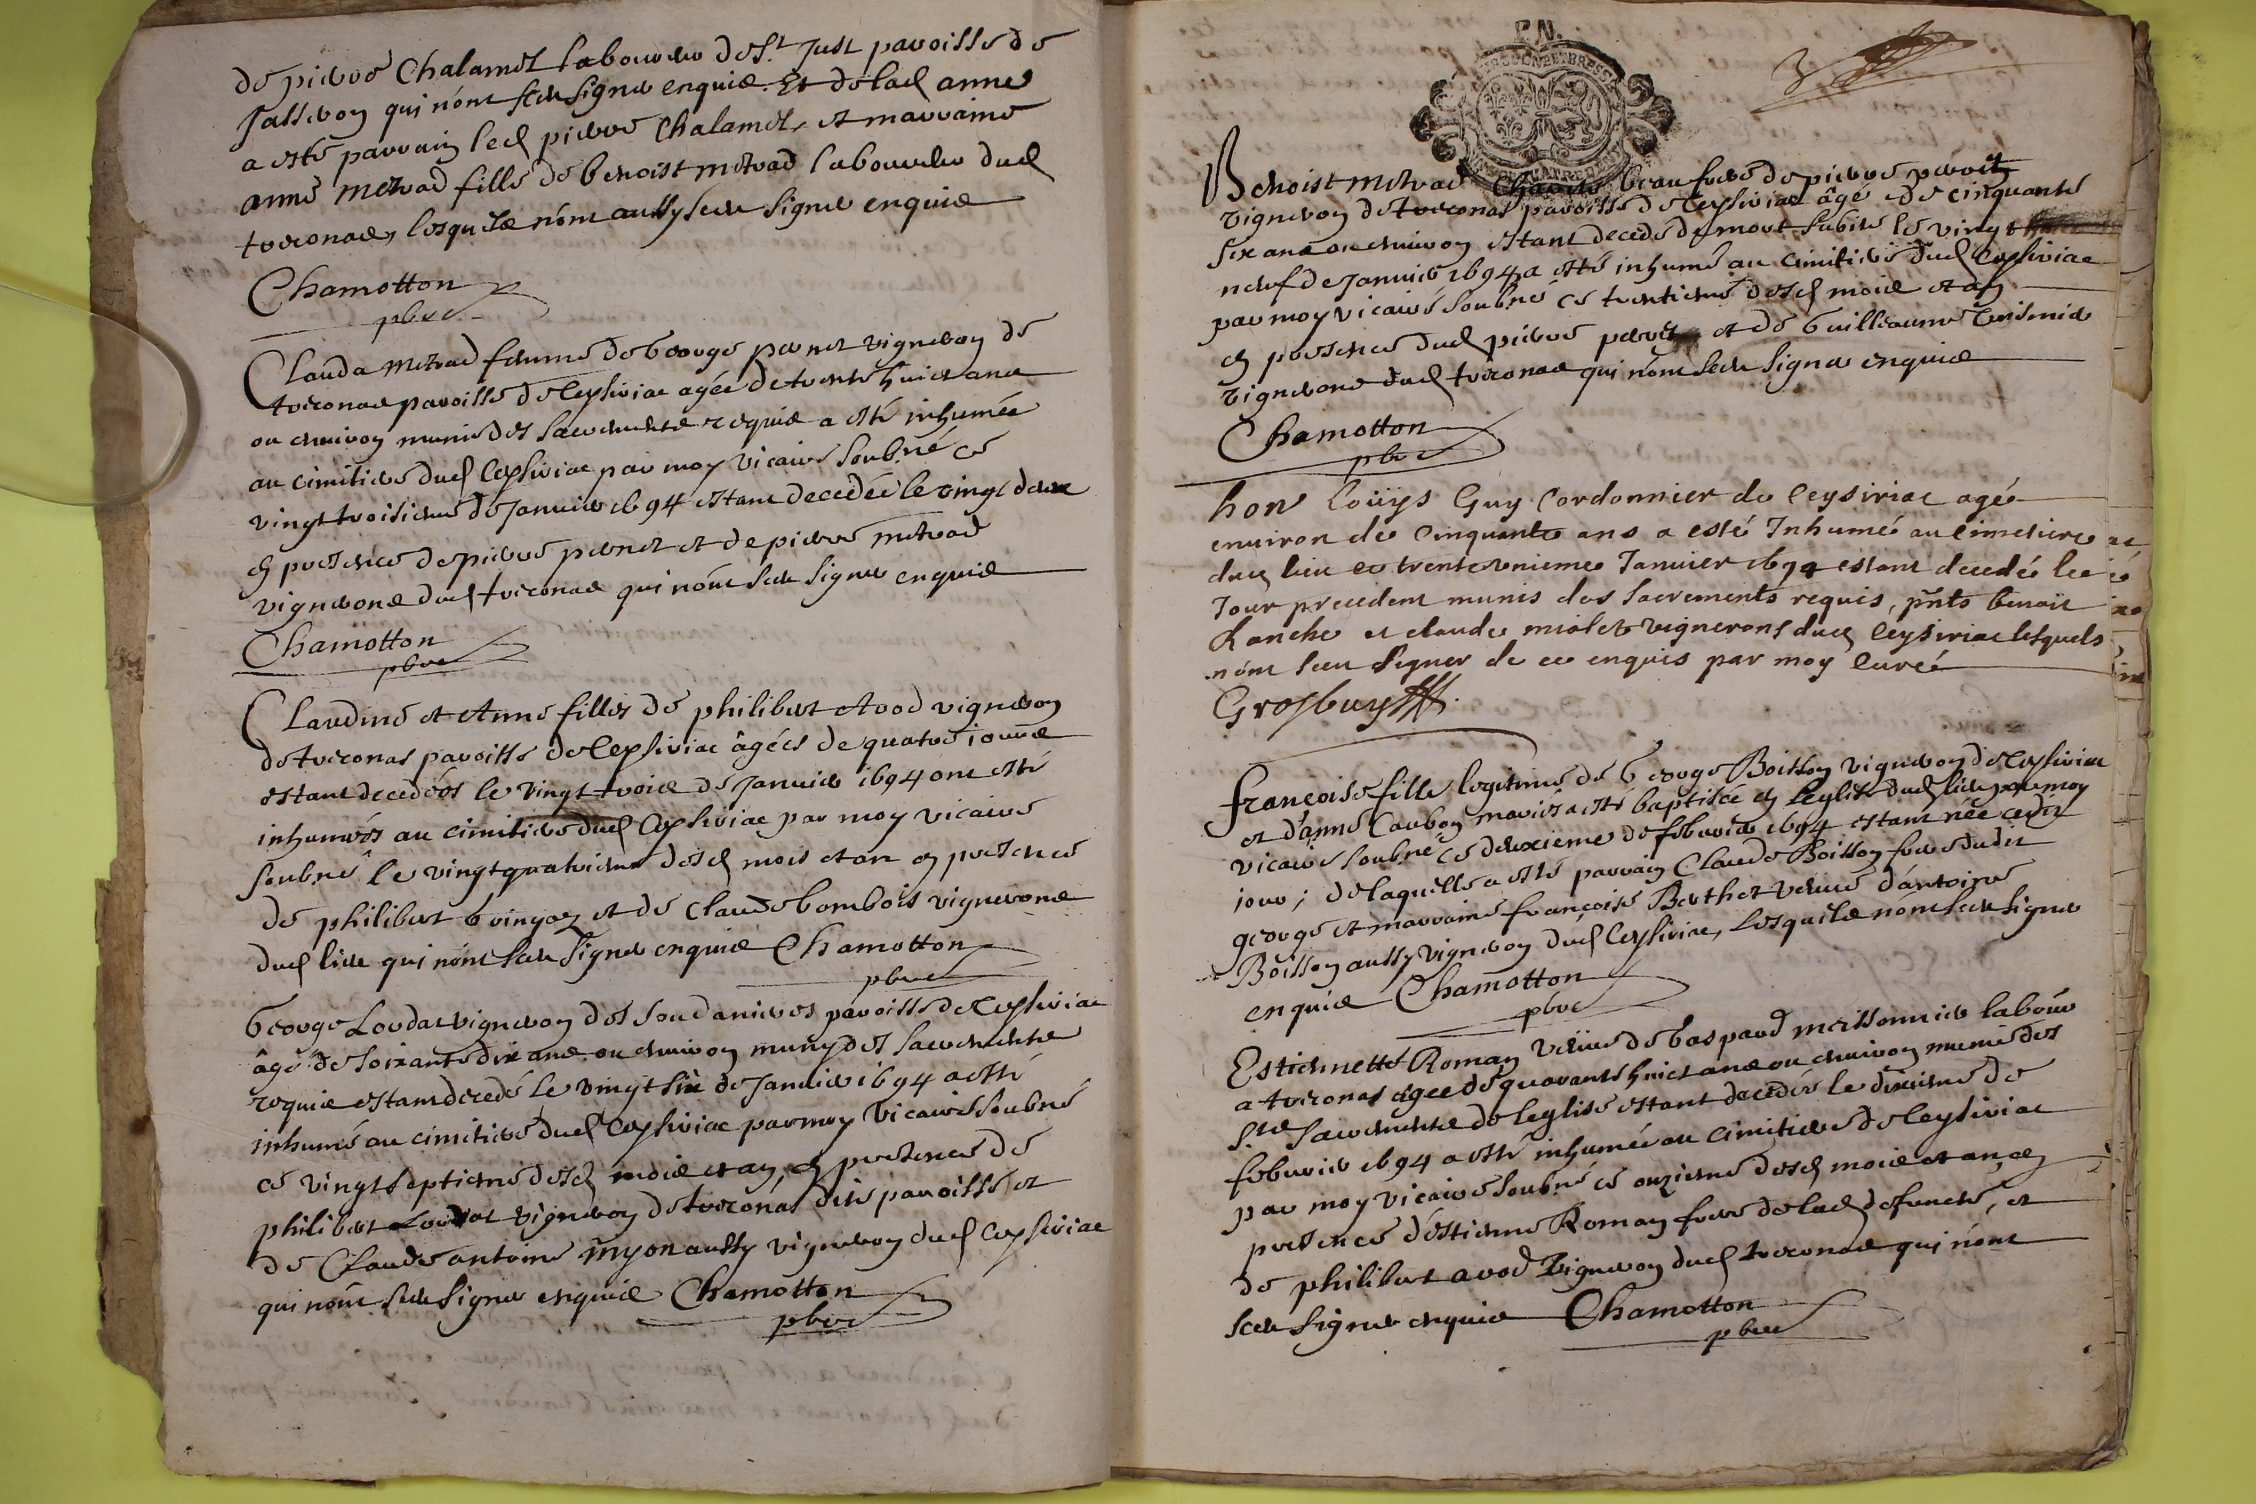 de pierre Chalamel laboureur de St Just paroisse de
Jasseron qui n'ont sceu signer enquis. Et de lad anne
a esté parrain led pierre Chalamel, et marraine
anne metrad fille de benoist metrad laboureur dud
treconas, lesquels n'ont aussy sceu signer enquis
Chamotton
pbre
Clauda metrad femme de george pernet vigneron de
treconas paroisse de Ceysiriac agée de trente huict ans
ou environ munie des sacrements requis a esté inhumée
au cimitiere dud Ceysiriac par moy vicaire soubné ce
vingt troisieme de Janvier 1694 estant decedée le vingt deux
en presence de pierre pernet et de pierre metrad
vignerons dud treconas qui n'ont sceu signer enquis
Chamotton
pbre
Claudine et Anne filles de philibert Avod vigneron
de treconas paroisse de Ceysiriac âgées de quatre jours
estant decedées le vingt trois de Janvier 1694 ont esté
inhumées au cimitiere dud Ceysiriac par moy vicaire
soubné le vingtquatrieme desd mois et an en presence
de philibert gringoz et de Claude bombois vignerons
dud lieu qui n'ont sceu signer enquis Chamotton
pbre
George Loudat vigneron des Soudanieres paroisse de Ceysiriac
âgé de soixante dix ans ou environ muny des sacrements
requis estant decedé le vingt six de Janvier 1694 a esté
inhumé au cimitiere dud Ceysiriac par moy vicaire soubné
ce vingt septieme desd mois et an, en presence de
philibert Loudat vigneron de treconas dite paroisse et
de Claude antoine myon aussy vigneron dud Ceysiriac
qui n'ont sceu signer enquis Chamotton
pbre
3
Benoist metrad beau frere de pierre
vigneron de treconas paroisse de Ceysiriac âgé de cinquante
six ans ou environ estant decedé de mort subite le vingt
neuf de Janvier 1694 a esté inhumé au cimitiere dud Ceysiriac
par moy vicaire soubné ce trentieme desd mois et an
en presence dud pierre et de Guilleaume
vignerons dud treconas qui n'ont sceu signer enquis
Chamotton
pbre
hon Loüys Guy Cordonnier de Ceysiriac agé
environ de Cinquante ans a esté Inhumé au Cimetiere
dud lieu ce trente unieme Janvier 1694 estant decedé le
Jour precedent munis des Sacrements requis, pnts benoit
Ranche et claude miolet vignerons dud Ceysiriac lesquels
n'ont sceu signer de ce enquis par moy Curé
Grosbuy
francoise fille legitime de George Boisson vigneron de Ceysiriac
et d'anne Carbon mariés a esté baptisée en l'eglise dud lieu par moy
vicaire soubné ce deuxieme de febvrier 1694 estant née cedit
jour; de laquelle a esté parrain Claude Boisson frere dudit
george et marraine françoise Berthet vefve d'antoine
Boisson aussy vigneron dud Ceysiriac, lesquels n'ont sceu signer
enquis Chamotton
pbre
Estiennette Roman vefve de Gaspard meissonnier labour
a treconas âgée de quarante huict ans ou environ munie des
Sts sacrements de l'eglise estant decedée le dixieme de
febvrier 1694 a esté inhumée au cimitiere de Ceysiriac
par moy vicaire soubné ce onzieme desd mois et an, en
presence d'estienne Roman frere de lad defuncte, et
de philibert avod vigneron dud treconas qui n'ont
sceu signer enquis Chamotton
pbre